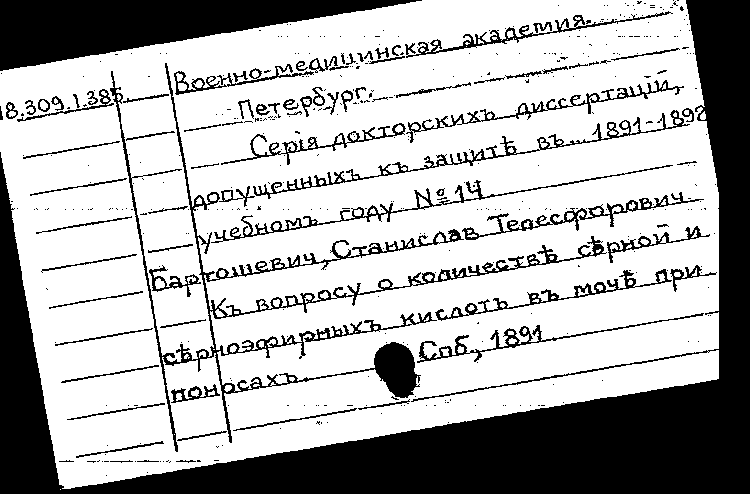 18.309.1.385. Военно-медицинская академия.
Петербург.
Серія докторскихъ диссертацій,
допущенныхъ къ защитѣ въ... 1891-1892
учебномъ году №14.
Бартошевич, Станислав Телесфорович
Къ вопросу о количествѣ сѣрной и
сѣрноэфирныхъ кислотъ въ мочѣ при
поносахъ. Спб., 1891